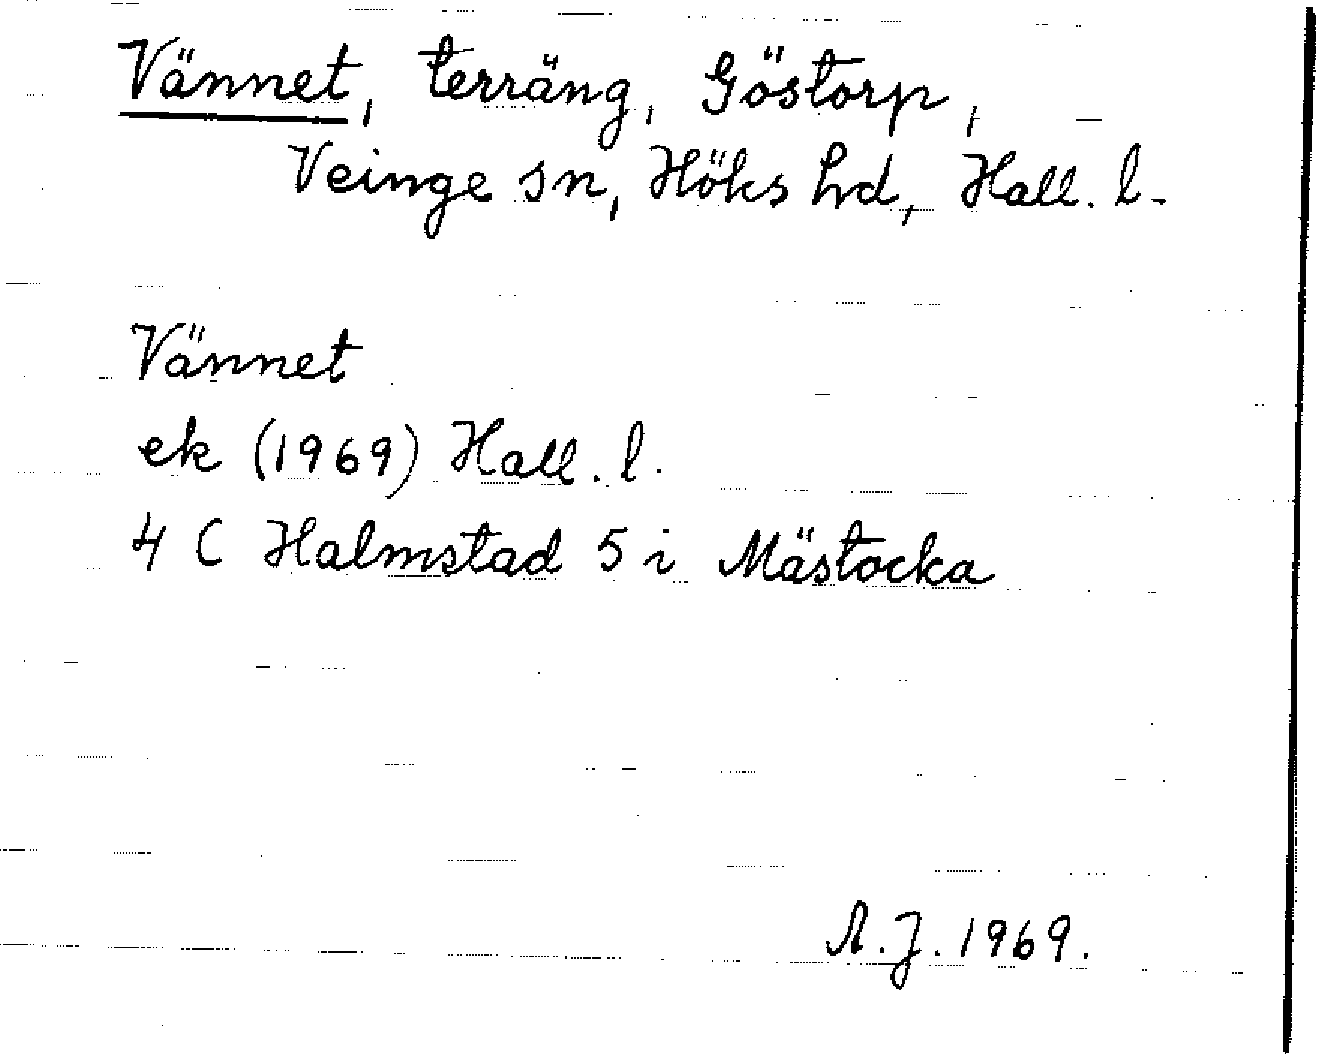 Vännet, terräng, Göstorp,
Veinge sn, Höks hd, Hall. l.
Vännet
ek (1969) Hall. l.
4 C Halmstad 5 i Mästocka
A.J. 1969.